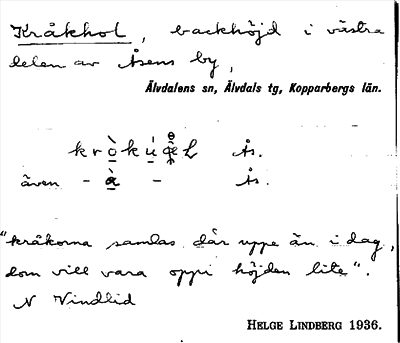 Kråkhol, backhöjd i västra
delen av Åsens by,
Älvdalens sn, Älvdals tg, Kopparbergs län.
Ås.
även - - Ås.
"kråkorna samlas där uppe än i dag,
dom vill vara oppi höjden lite".
N Vindlid
HELGE LINDBERG 1936.